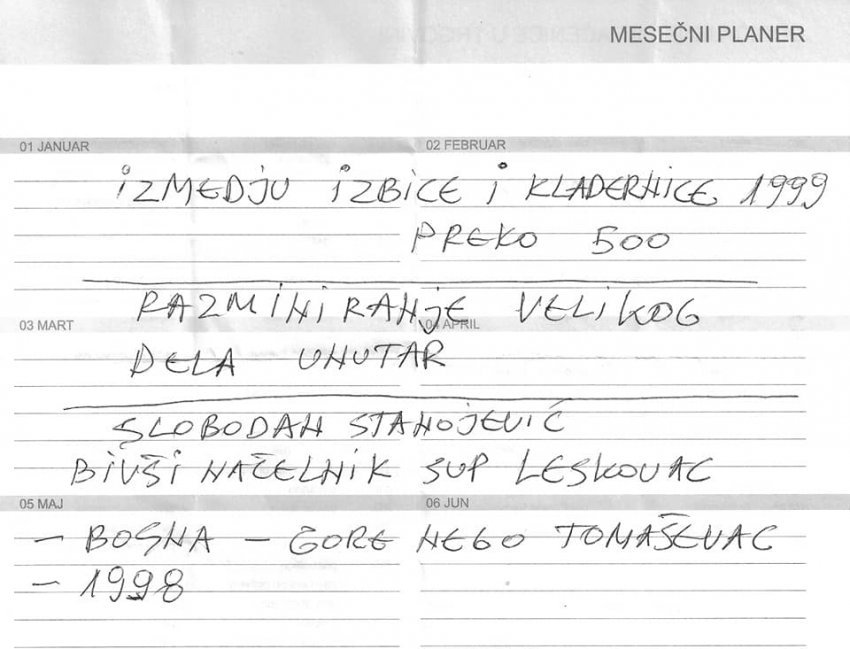 MESEČNI PLANER
01 JANUAR
02 FEBRUAR
IZMEDJU IZBICE I KLADERNICE 1999
PREKO 500
RAZMINIRANJE VELIKOG
03 MART
04 APRIL
DELA UNUTAR
SLOBODAN STANOJEVIĆ
BIVŠI NAČELNIK SUP LESKOVAC
05 MAJ
06 JUN
– BOSNA – GORE NEGO TOMAŠEVAC
– 1998